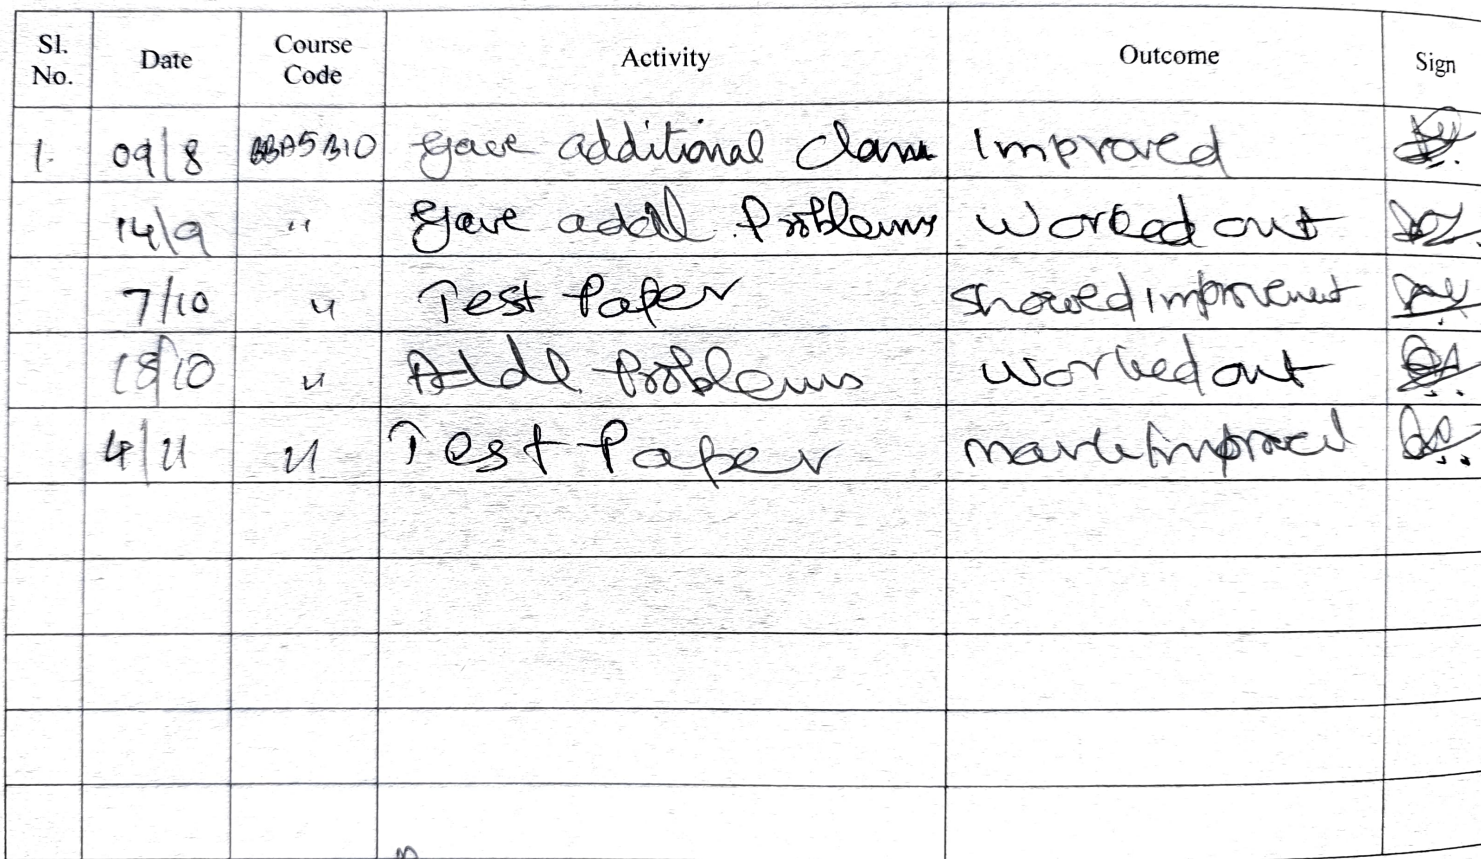 Sl. No. Date Course Code Activity Outcome Sign
1. 09/8 BBA5B10 Gave additional class Improved
14/9 " Gave addl Problems Worked out
7/10 " Test Paper Showed improvement
18/10 " Addl Problems Worked out
4/11 " Test Paper mark improved